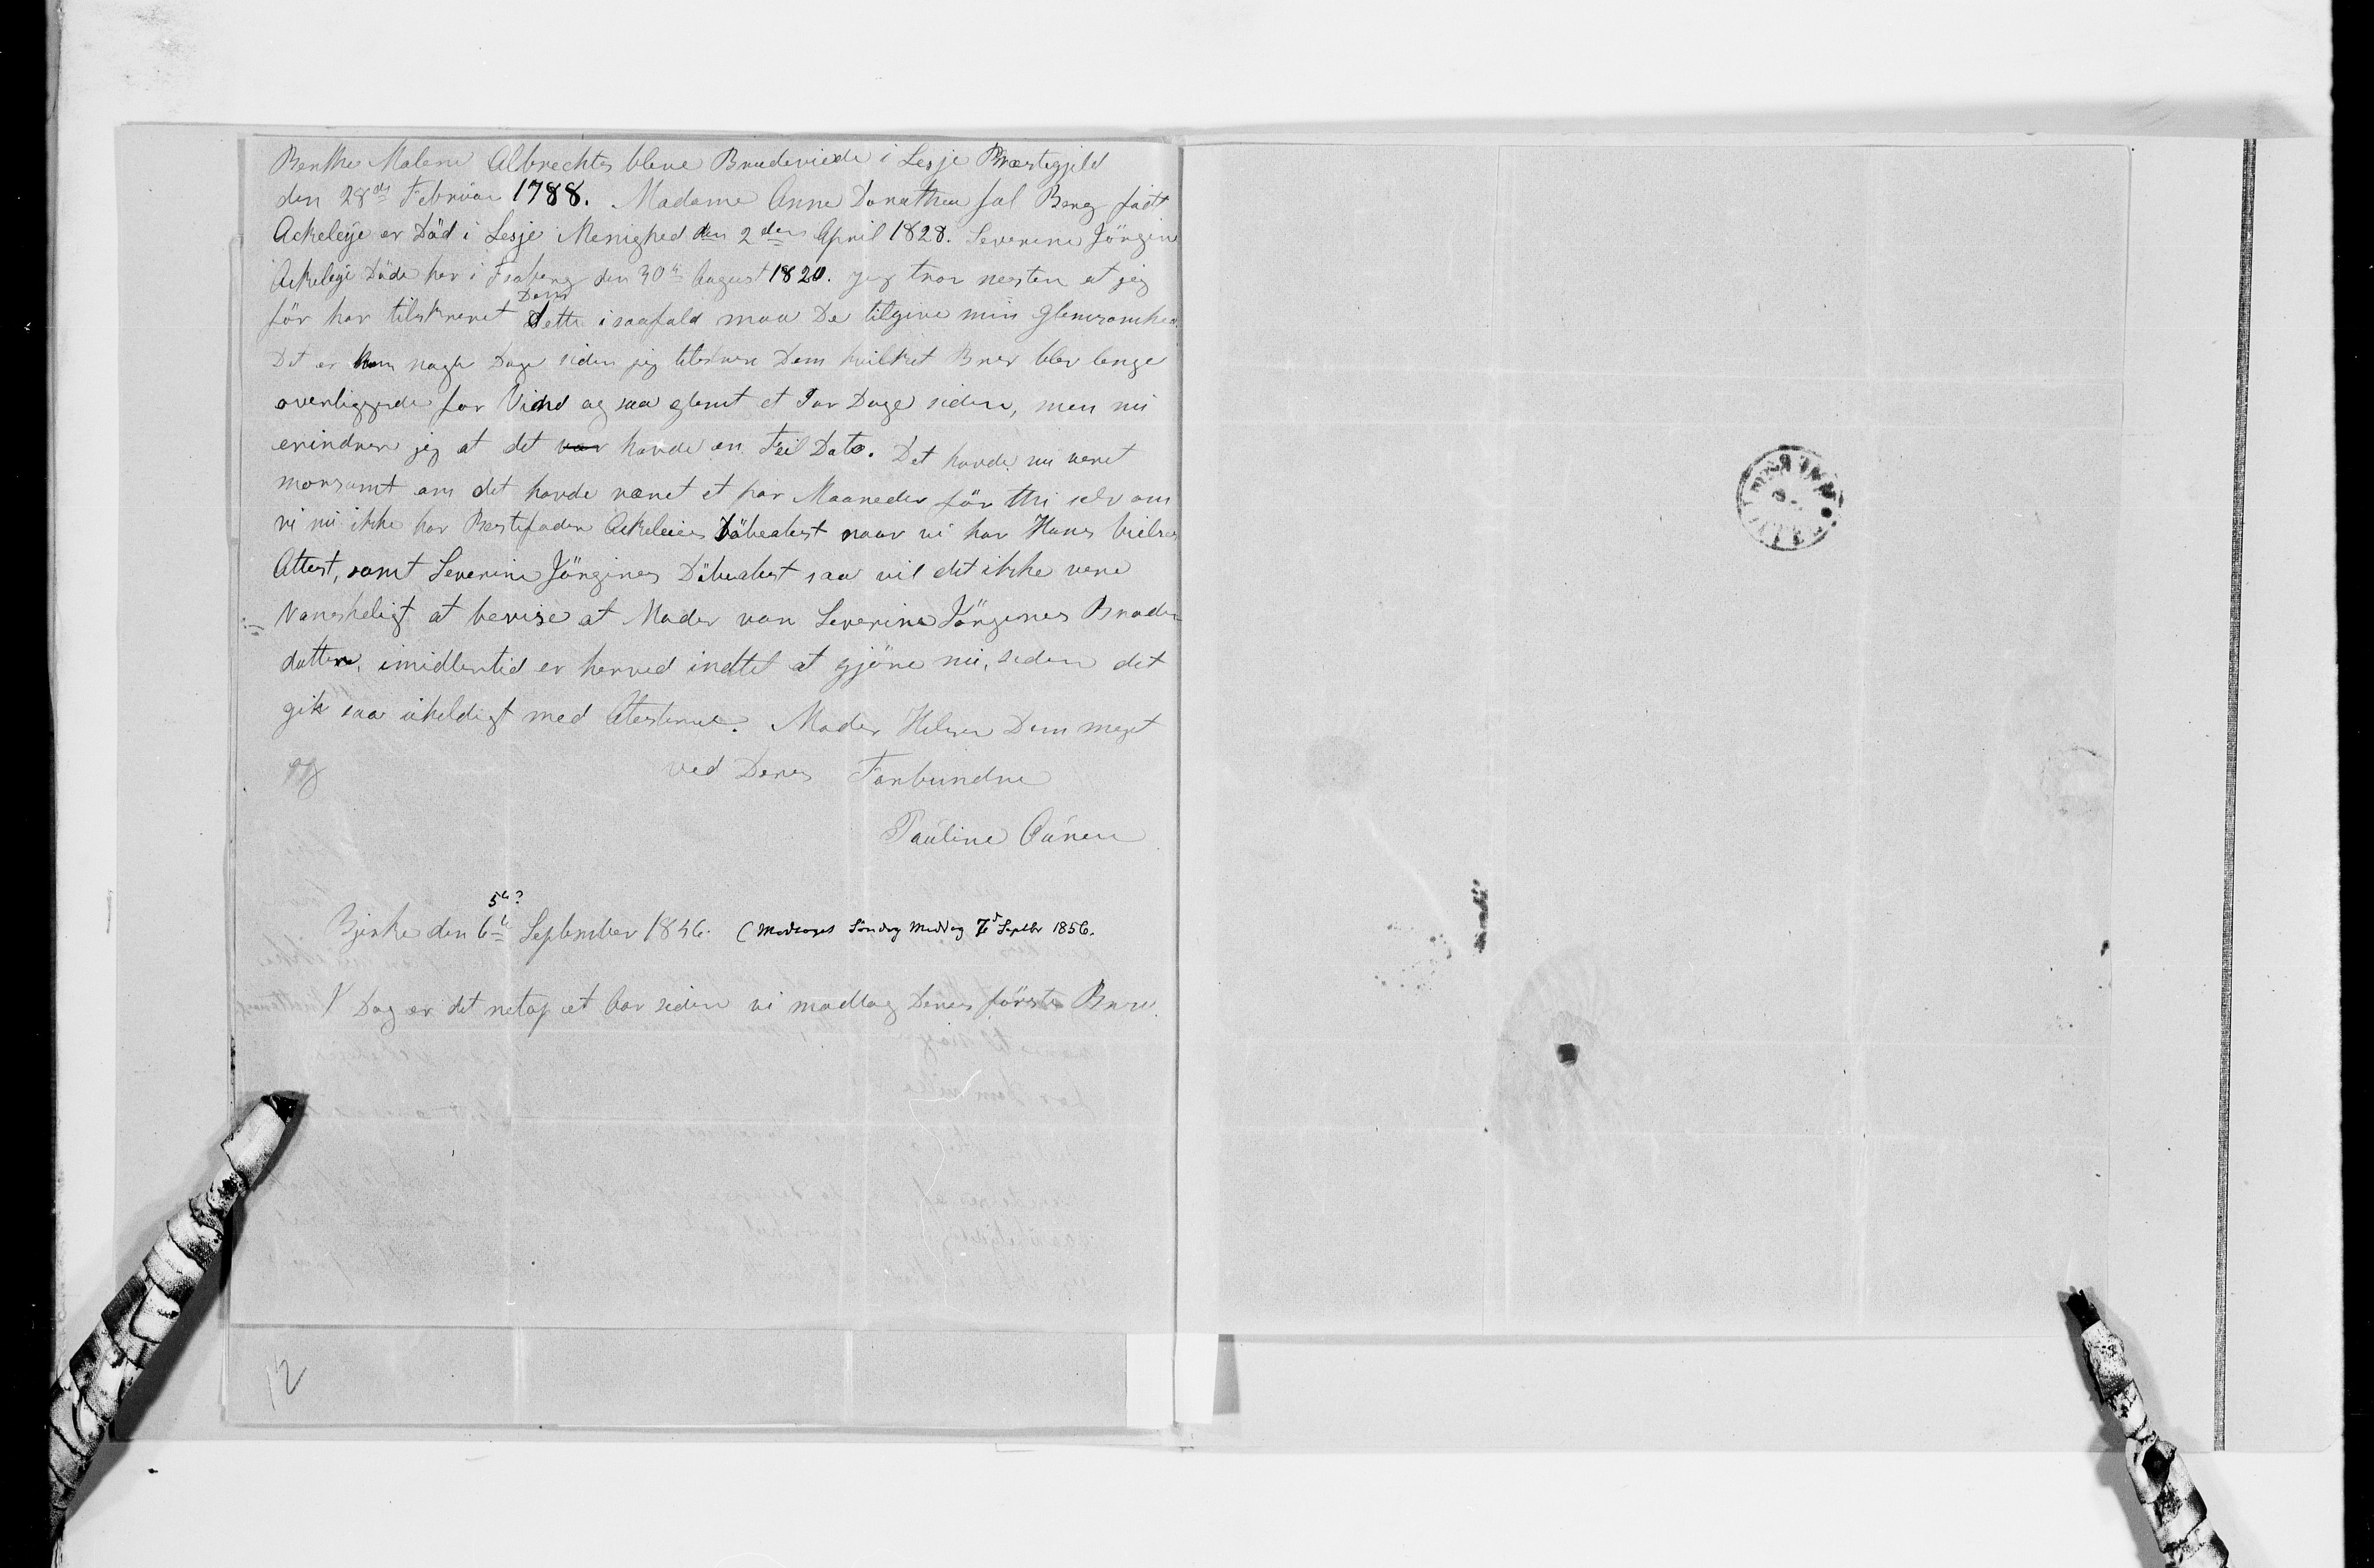 Benthe Malene Albrechts bleve Brudeviede i Lesje Præstegjeld
den 28de Februar 1788. Madame Anne Dorothea sal Berg födt
Ackeleye er Död i Lesje Menighed den 2den April 1828. Severine Jörgine
Ackeleye Döde her i Faaberg den 30te August 1820. jeg tror nesten at jeg
för har tilskrevet Dem dette i saafald maa De tilgive min Glemsomhed.
Det er kun nogle Dage siden jeg tilskrev Dem hvilket Brev blev lenge
overliggende for Vind og saa glemt et Par Dage siden, men nu
erindrer jeg at det var havde en Feil Dato. Det havde nu veret
morsomt om det havde været et par Maaneder för thi selv om
vi nu ikke har Bestefader Ackeleies Döbeatest naar vi har Hans Vielses
Attest, samt Severine Jörgines Döbeatest saa vil det ikke vere
Vanskeligt at bevise at Moder var Severine Jörgines Broder
datter, imidlertid er herved indtet at gjöre nu, siden det
gik saa uheldigt med Atesterne. Moder Hilser Dem meget
ved Deres Forbundne
Pauline
5te?
Bjerke den 6te September 1856. (Modtaget Söndag Middag 7de Septbr 1856.
I Dag er det netop et Aar siden vi modtog Deres förste Brev.
12